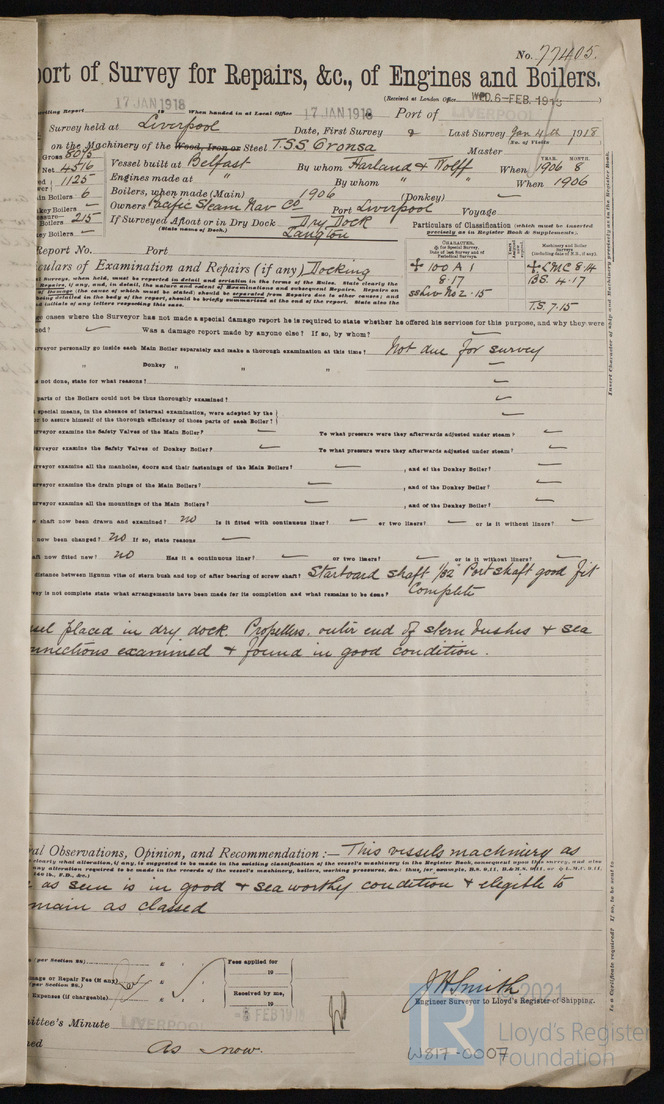 No. 77405.
port of Survey for Repairs, &c., of Engines and Boilers.
(Received at London Office WED. 6-FEB. 1918)
writing Report 17 JAN 1918 19 When handed in at Local Office 17 JAN 1918 Port of LIVERPOOL
Survey held at Liverpool Date, First Survey & Last Survey Jan 4th 1918
(No. of Visits
on the Machinery of the Wood, Iron or Steel T.S.S. Oronsa Master
Gross 8075 Vessel built at Belfast By whom Harland & Wolff When 1906 8
YEAR. MONTH.
Net 4516
1125 Engines made at " By whom " " When 1906
Boilers 6 Boilers, when made (Main) 1906 (Donkey)
key Boilers — Owners Pacific Steam Nav Co Port Liverpool Voyage
Boilers 215 If Surveyed Afloat or in Dry Dock Dry Dock
(State name of Dock.) Langton
y Boilers —
Particulars of Classification (which must be inserted
precisely as in Register Book & Supplements).
✠ 100 A 1 ✠ LMC 8.14
8.17 BS. 4.17
ss Liv No 2 - 15
T.S. 7.15
Report No. Port
culars of Examination and Repairs (if any) Docking
ge cases where the Surveyor has not made a special damage report he is required to state whether he offered his services for this purpose, and why they were
ed? — Was a damage report made by anyone else? If so, by whom? —
urveyor personally go inside each Main Boiler separately and make a thorough examination at this time? Not due for survey
" Donkey " " " —
e not done, state for what reasons? —
parts of the Boilers could not be thus thoroughly examined? —
special means, in the absence of internal examination, were adopted by the
or to assure himself of the thorough efficiency of those parts of each Boiler? —
urveyor examine the Safety Valves of the Main Boiler? — To what pressure were they afterwards adjusted under steam? —
urveyor examine the Safety Valves of Donkey Boiler? — To what pressure were they afterwards adjusted under steam? —
urveyor examine all the manholes, doors and their fastenings of the Main Boilers? — , and of the Donkey Boiler? —
urveyor examine the drain plugs of the Main Boilers? — , and of the Donkey Boiler? —
urveyor examine all the mountings of the Main Boilers? — , and of the Donkey Boiler? —
w shaft now been drawn and examined? no Is it fitted with continuous liner? — or two liners? — or is it without liners? —
now been changed? no If so, state reasons —
aft now fitted new? no Has it a continuous liner? — or two liners? — or is it without liners? —
distance between lignum vitæ of stern bush and top of after bearing of screw shaft? Starboard shaft 1/32" Port shaft good fit
vey is not complete state what arrangements have been made for its completion and what remains to be done? Complete
ssel placed in dry dock. Propellers, outer end of stern bushes & sea
onnections examined & found in good condition.
al Observations, Opinion, and Recommendation:— This vessels machinery as
as seen is in good & seaworthy condition & eligible to
main as classed
(per Section 28) £ : : Fees applied for
19
mage or Repair Fee (if any) £ : :
(per Section 28.)
Expenses (if chargeable) £ : : Received by me,
19
-5 FEB 1918
J H Smith
Engineer Surveyor to Lloyd's Register of Shipping.
mittee's Minute LIVERPOOL
ned As now.
W817-0007
2021
LR
Lloyd's Register
Foundation
Insert Character of Ship and Machinery precisely as in the Register Book.
Is a Certificate required? If so, to be sent to